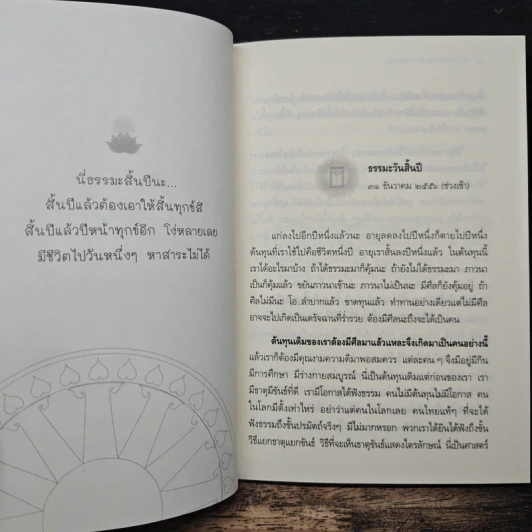 นี่ธรรมะสิ้นปีนะ...
สิ้นปีแล้วต้องเอาให้สิ้นทุกข์สิ
สิ้นปีแล้วปีหน้าทุกข์อีก โง่หลายเลย
มีชีวิตไปวันหนึ่งๆ หาสาระไม่ได้
ธรรมะวันสิ้นปี
๓๑ ธันวาคม ๒๕๕๖ (ช่วงเช้า)
แก่ลงไปอีกปีหนึ่งแล้วนะ อายุลดลงไปปีหนึ่งก็ตายไปปีหนึ่ง
ต้นทุนที่เราใช้ไปคือชีวิตหนึ่งปี อายุเราสั้นลงปีหนึ่งแล้ว ในต้นทุนนี้
เราได้อะไรมาบ้าง ถ้าได้ธรรมะมาก็คุ้มนะ ถ้ายังไม่ได้ธรรมะมา ภาวนา
เป็นก็คุ้มแล้ว ขยันภาวนาเข้านะ ภาวนาไม่เป็นนะ มีศีลก็ยังคุ้มอยู่ ถ้า
ศีลไม่มีนะ โอ..ลำบากแล้ว ขาดทุนแล้ว ทำทานอย่างเดียวแต่ไม่มีศีล
อาจจะไปเกิดเป็นเดรัจฉานที่ร่ำรวย ต้องมีศีลนะถึงจะได้เป็นคน
ต้นทุนเดิมของเราต้องมีศีลมาแล้วแหละจึงเกิดมาเป็นคนอย่างนี้
แล้วเราก็ต้องมีคุณงามความดีมาพอสมควร แต่ละคนๆ จึงมีอยู่มีกิน
มีการศึกษา มีร่างกายสมบูรณ์ นี่เป็นต้นทุนเดิมแต่ก่อนของเรา เรา
มีธาตุมีขันธ์ที่ดี เรามีโอกาสได้ฟังธรรม คนไม่มีต้นทุนไม่มีโอกาส คน
ในโลกมีตั้งเท่าไหร่ อย่าว่าแต่คนในโลกเลย คนไทยแท้ๆ ที่จะได้
ฟังธรรมถึงขั้นปรมัตถ์จริงๆ มีไม่มากหรอก พวกเราได้ยินได้ฟังถึงขั้น
วิธีแยกธาตุแยกขันธ์ วิธีที่จะเห็นธาตุขันธ์แสดงไตรลักษณ์ นี่เป็นศาสตร์